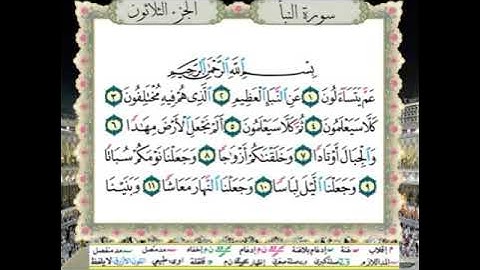 الجزء الثلاثون
سورة النبأ
بِسْمِ اللَّهِ الرَّحْمَٰنِ الرَّحِيمِ
عَمَّ يَتَسَاءَلُونَ ١ عَنِ النَّبَإِ الْعَظِيمِ ٢ الَّذِي هُمْ فِيهِ مُخْتَلِفُونَ ٣
كَلَّا سَيَعْلَمُونَ ٤ ثُمَّ كَلَّا سَيَعْلَمُونَ ٥ أَلَمْ نَجْعَلِ الْأَرْضَ مِهَادًا ٦
وَالْجِبَالَ أَوْتَادًا ٧ وَخَلَقْنَاكُمْ أَزْوَاجًا ٨ وَجَعَلْنَا نَوْمَكُمْ سُبَاتًا
٩ وَجَعَلْنَا اللَّيْلَ لِبَاسًا ١٠ وَجَعَلْنَا النَّهَارَ مَعَاشًا ١١ وَبَنَيْنَا